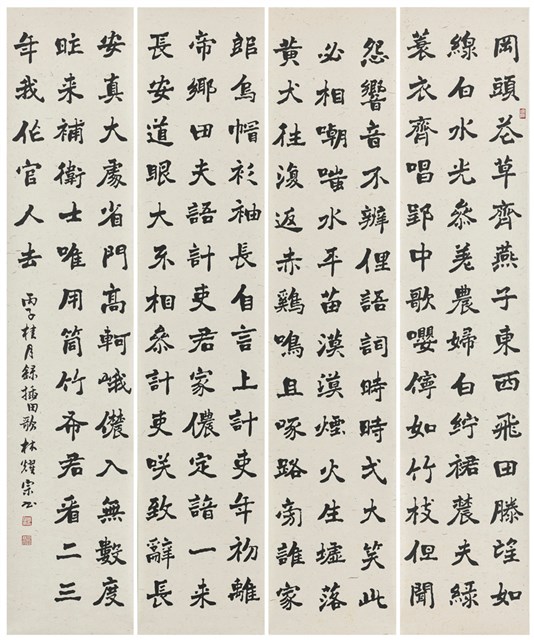 岡頭花草齊燕子東西飛田塍望如
線白水光參差農婦白紵裙農夫綠
蓑衣齊唱郢中歌嚶儜如竹枝但聞
怨響音不辨俚語詞時時弌大笑此
必相嘲嗤水平苗漠漠煙火生墟落
黃犬往復返赤鷄鳴且啄路旁誰家
郎烏帽衫袖長自言上計吏年初離
帝鄉田夫語計吏君家儂定諳一来
長安道眼大不相參計吏咲致辭長
安真大處省門高軻峨儂入無數度
昨来補衛士唯用筒竹布君看二三
年我作官人去
丙子桂月錄插田歌林耀宗書